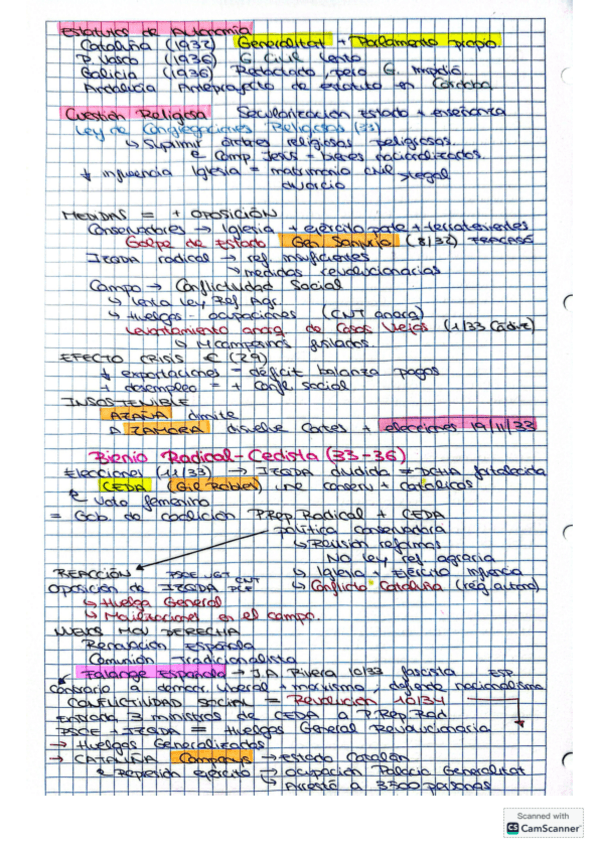 Estatutos de Autonomía
Cataluña (1932) Generalitat + Parlamento propio.
P. Vasco (1936) G. Civil lento
Galicia (1936) Redactado, pero G. impidió
Andalucía Anteproyecto de estatuto en Córdoba
Cuestión Religiosa Secularización Estado + enseñanza
Ley de Congregaciones Religiosas (33)
↳ Suprimir órdenes religiosas peligrosas.
e Comp. Jesús = bienes nacionalizados.
↓ influencia Iglesia = matrimonio civil > legal
divorcio
MEDIDAS = + OPOSICIÓN
Conservadores → Iglesia + ejército parte + terratenientes
Golpe de Estado Gen. Sanjurjo (8/32) FRACASÓ
IZQDA radical → ref. insuficientes
→ medidas revolucionarias
Campo → Conflictividad Social
↳ Lenta Ley Ref. Agr.
↳ Huelgas - ocupaciones (CNT anarq)
Levantamiento anarq. de Casas Viejas (1/33 Cádiz)
↳ M campesinos fusilados
EFECTO CRISIS € (29)
↓ exportaciones = déficit balanza pagos
+ desempleo = + Confl. social
INSOSTENIBLE
AZAÑA dimite
A ZAMORA disuelve Cortes + elecciones 19/11/33
Bienio Radical-Cedista (33-36)
Elecciones (11/33) → IZQDA dividida ≠ DCHA fortalecida
CEDA (Gil Robles) une conserv + católicos
e voto femenino
= Gob. de coalición P.Rep.Radical + CEDA
política conservadora
↳ Revisión reformas
No ley ref. agraria
REACCIÓN PSOE UGT ↳ Iglesia + Ejército influencia
oposición de IZQDA CNT PCE ↳ Conflicto Cataluña (rég. autón)
↳ Huelga General
↳ Movilizaciones en el campo.
NUEVOS MOV DERECHA
Renovación Española
Comunión Tradicionalista
Falange Española → J.A. Rivera 10/33 fascista ESP
Contrario a democr. liberal + marxismo, defiende nacionalismo
CONFLICTIVIDAD SOCIAL = Revolución 10/34
Entrada 3 ministros de CEDA a P.Rep.Rad
PSOE + IZQDA = Huelgas General Revolucionaria
→ Huelgas Generalizadas
→ CATALUÑA Companys → Estado Catalán
e Represión ejército → Ocupación Palacio Generalitat
↳ Arrestó a 3500 personas
Scanned with
CS CamScanner